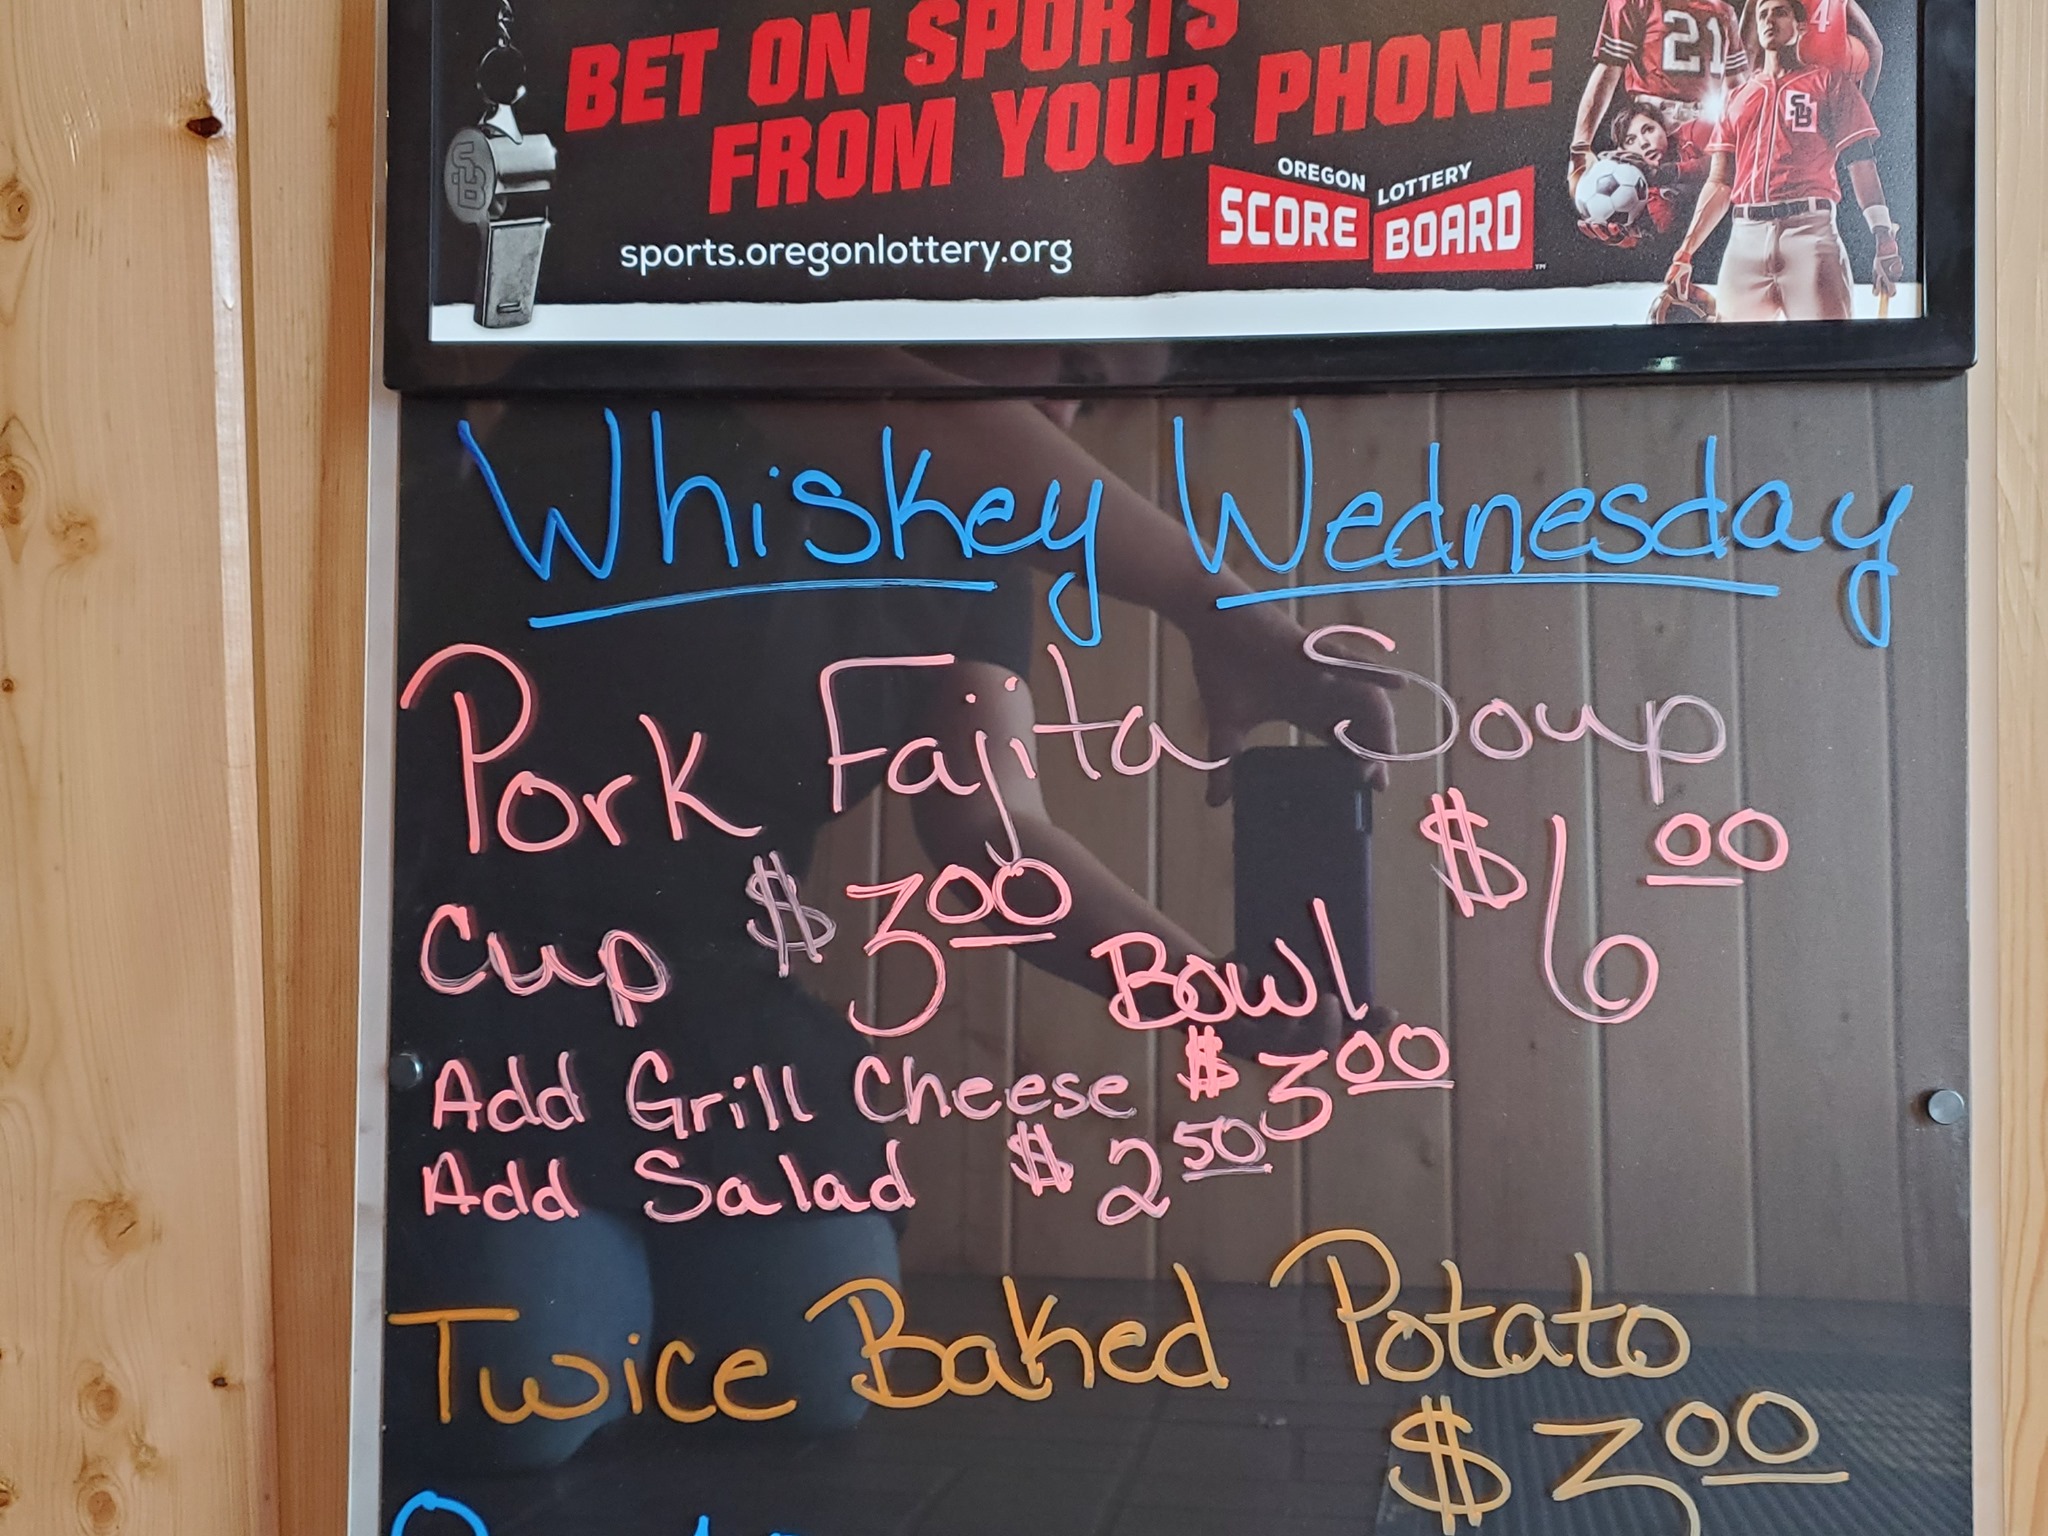 BET ON SPORTS
FROM YOUR PHONE
OREGON LOTTERY
SCORE BOARD™
sports.oregonlottery.org
21
4
SB
Whiskey Wednesday
Pork Fajita Soup
Cup $3.00 Bowl $6.00
Add Grill Cheese $3.00
Add Salad $2.50
Twice Baked Potato
$3.00